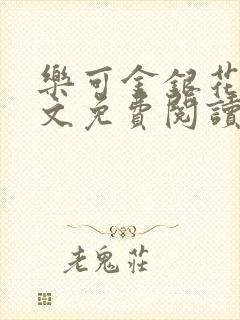 樂可金銀花
文免費閱讀
老鬼莊